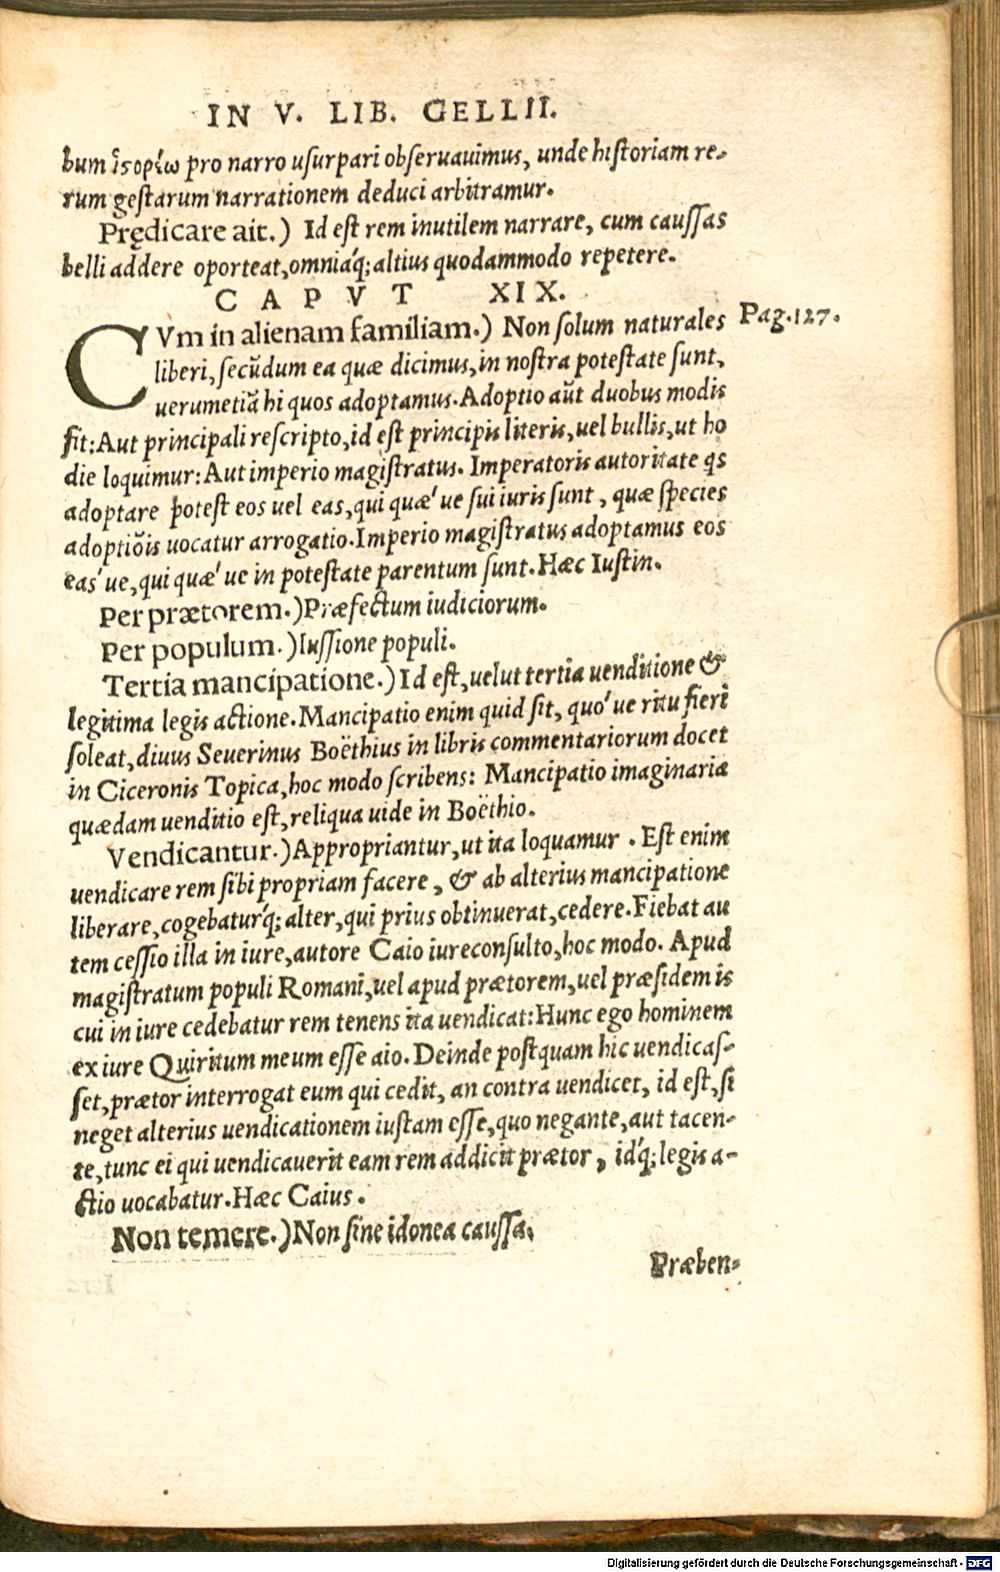 IN V. LIB. GELLII.
bum ἱϛορέω pro narro uſurpari obſeruauimus, unde hiſtoriam re-
rum geſtarum narrationem deduci arbitramur.
Prędicare ait.) Id eſt rem inutilem narrare, cum cauſſas
belli addere oporteat, omniaq́; altius quodammodo repetere.
CAPVT XIX.
CVm in alienam familiam.) Non ſolum naturales Pag. 127.
liberi, ſecũdum ea quæ dicimus, in noſtra poteſtate ſunt,
uerumetiã hi quos adoptamus. Adoptio aũt duobus modis
fit: Aut principali reſcripto, id eſt principis literis, uel bullis, ut ho
die loquimur: Aut imperio magiſtratus. Imperatoris autoritate q̃s
adoptare poteſt eos uel eas, qui quæ'ue ſui iuris ſunt, quæ ſpecies
adoptiõis uocatur arrogatio. Imperio magiſtratus adoptamus eos
eas'ue, qui quæ'ue in poteſtate parentum ſunt. Hæc Iuſtin.
Per prætorem.) Præfectum iudiciorum.
Per populum.) Iuſſione populi.
Tertia mancipatione.) Id eſt, uelut tertia uenditione &
legitima legis actione. Mancipatio enim quid ſit, quo'ue ritu fieri
ſoleat, diuus Seuerinus Boëthius in libris commentariorum docet
in Ciceronis Topica, hoc modo ſcribens: Mancipatio imaginaria
quædam uenditio eſt, reliqua uide in Boëthio.
Vendicantur.) Appropriantur, ut ita loquamur. Eſt enim
uendicare rem ſibi propriam facere, & ab alterius mancipatione
liberare, cogebaturq́; alter, qui prius obtinuerat, cedere. Fiebat au
tem ceſſio illa in iure, autore Caio iureconſulto, hoc modo. Apud
magiſtratum populi Romani, uel apud prætorem, uel præſidem is
cui in iure cedebatur rem tenens ita uendicat: Hunc ego hominem
ex iure Quiritum meum eſſe aio. Deinde poſtquam hic uendicaſ-
ſet, prætor interrogat eum qui cedit, an contra uendicet, id eſt, ſi
neget alterius uendicationem iuſtam eſſe, quo negante, aut tacen-
te, tunc ei qui uendicauerit eam rem addicit prætor, idq́; legis a-
ctio uocabatur. Hæc Caius.
Non temere.) Non ſine idonea cauſſa.
Præben-
Digitalisierung gefördert durch die Deutsche Forschungsgemeinschaft - DFG